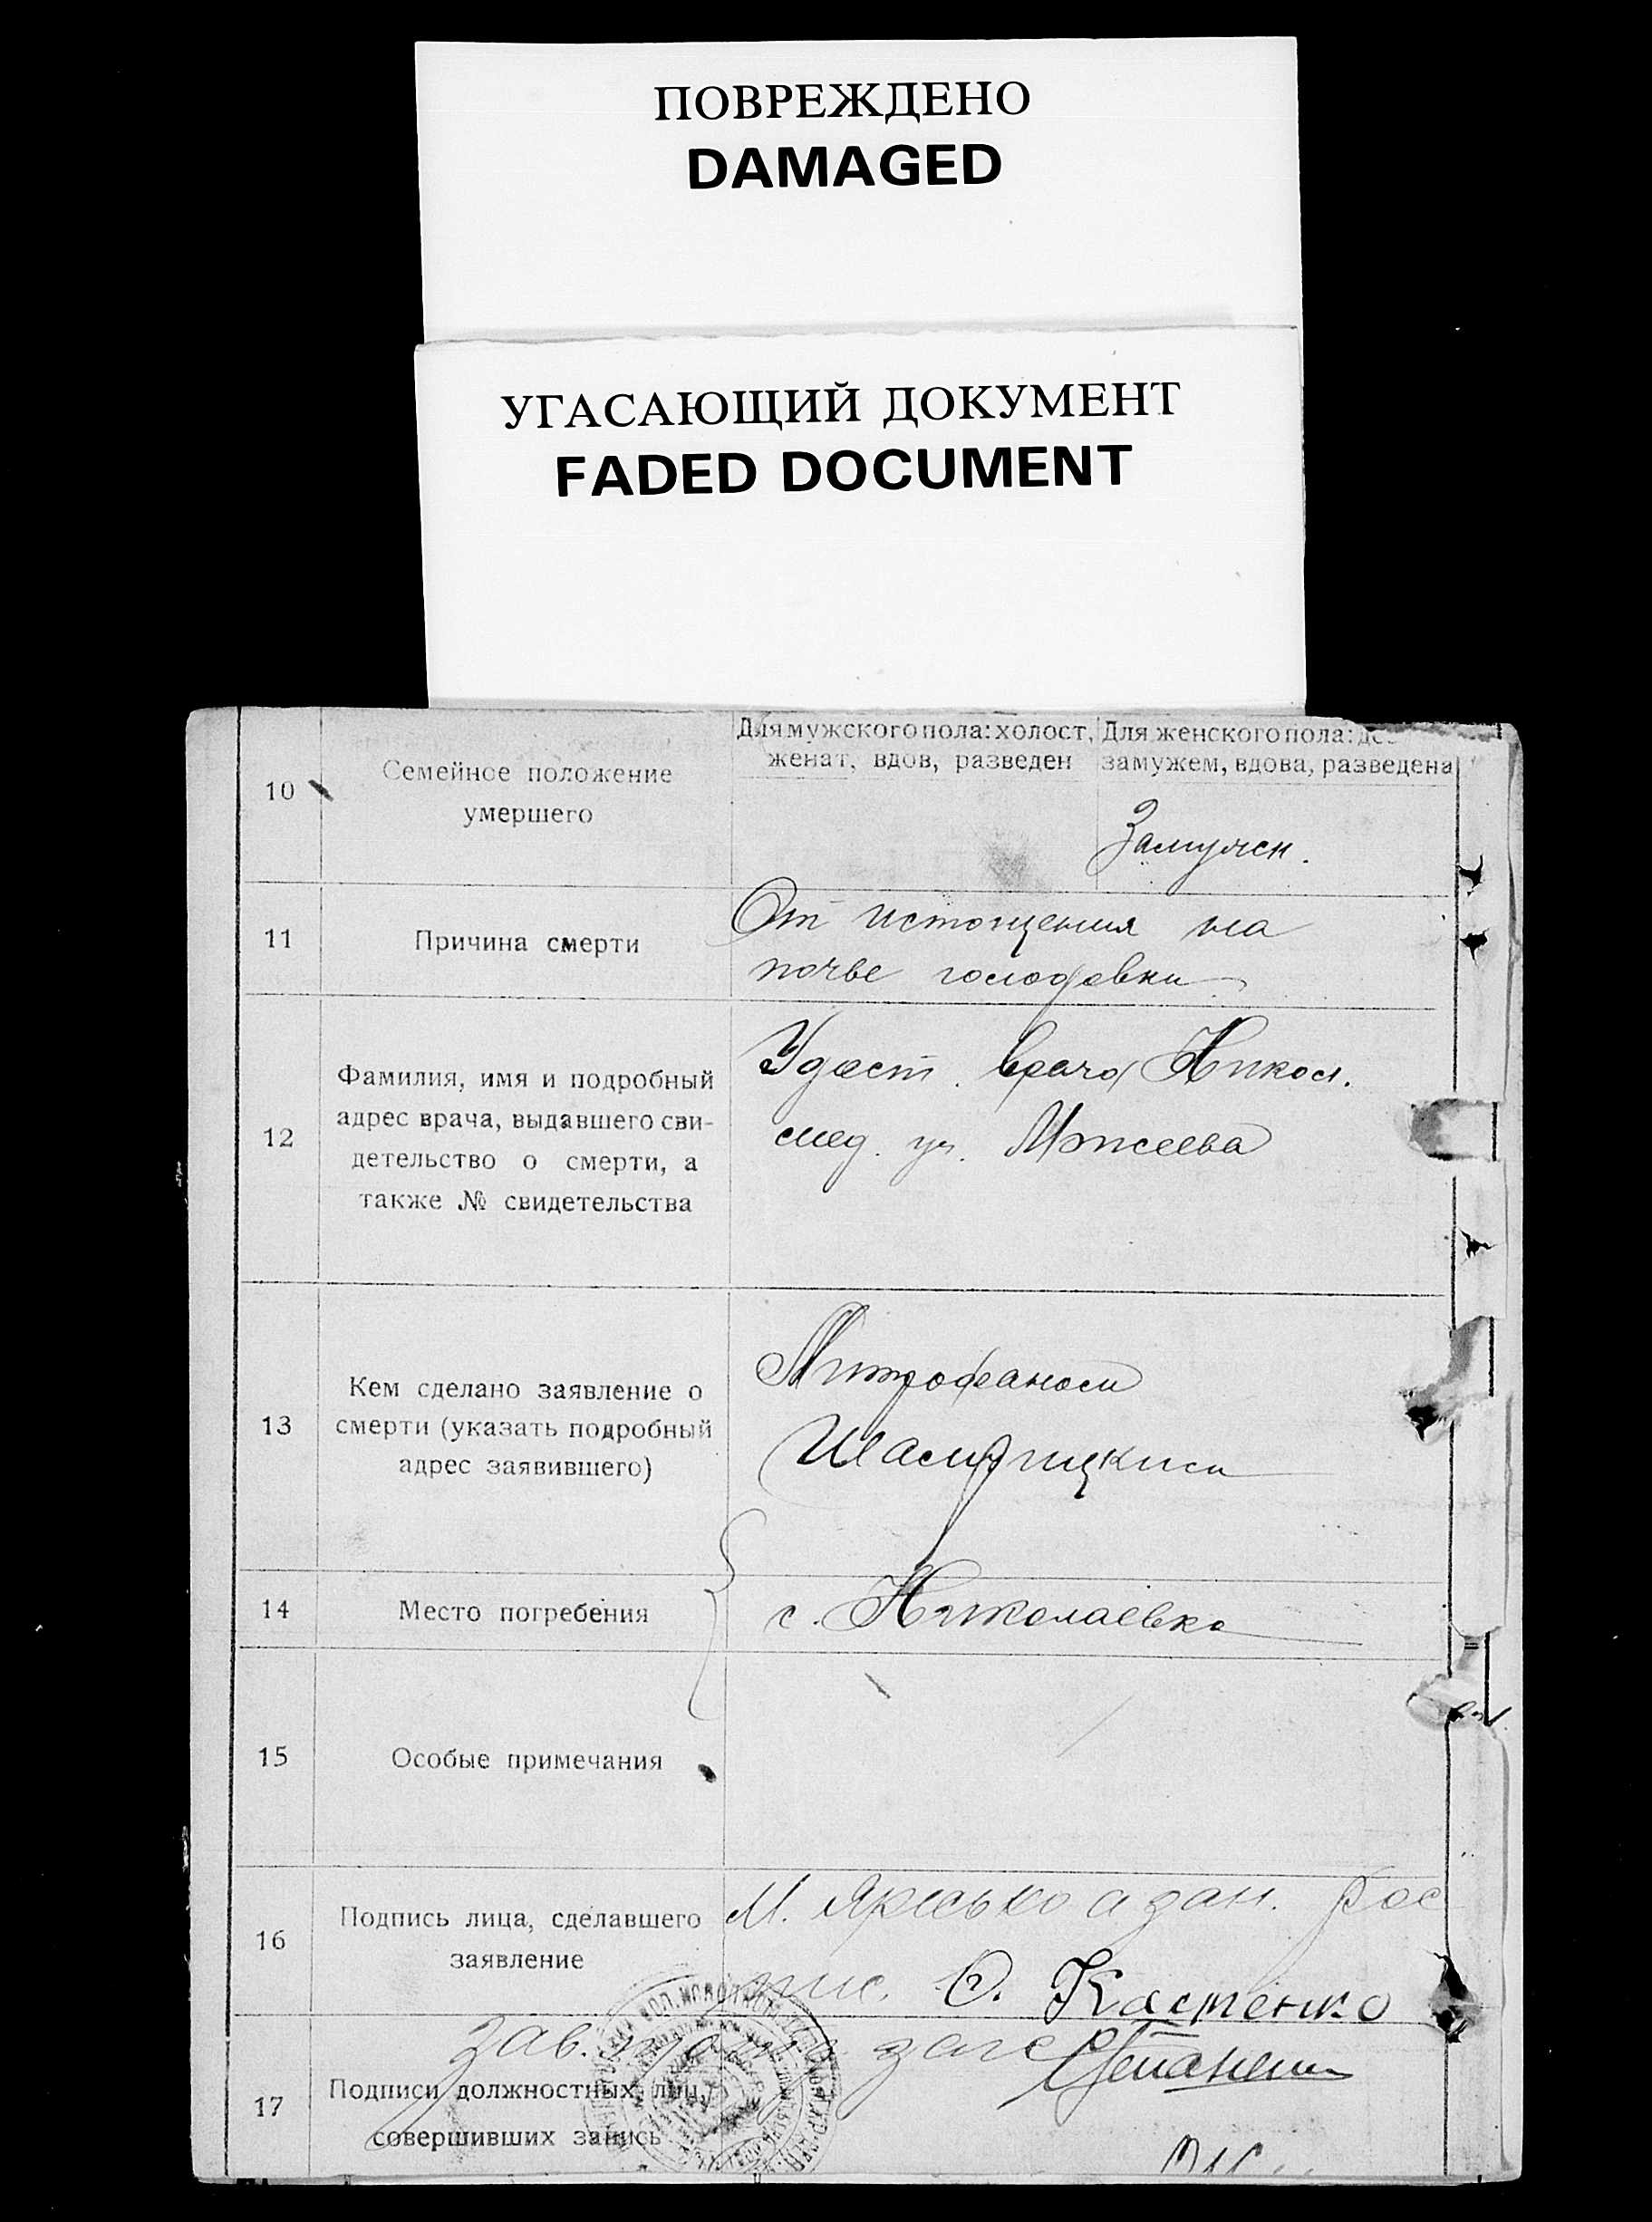 ПОВРЕЖДЕНО
DAMAGED
УГАСАЮЩИЙ ДОКУМЕНТ
FADED DOCUMENT
10
Семейное положение
умершего
Для мужского пола: холост,
женат, вдов, разведен
Для женского пола:
замужем, вдова, разведена
Замужем.
11
Причина смерти
От истощения на
почве голодовки
12
Фамилия, имя и подробный
адрес врача, выдавшего сви-
детельство о смерти, а
также № свидетельства
Удост. врача Никол.
мед. уч.
13
Кем сделано заявление о
смерти (указать подробный
адрес заявившего)
Митрофаном
14
Место погребения
с. Николаевка
15
Особые примечания
16
Подпись лица, сделавшего
заявление
М. а зан. рос
пис. О. Костенко
17
Подписи должностных лиц,
совершивших запись
Зав.